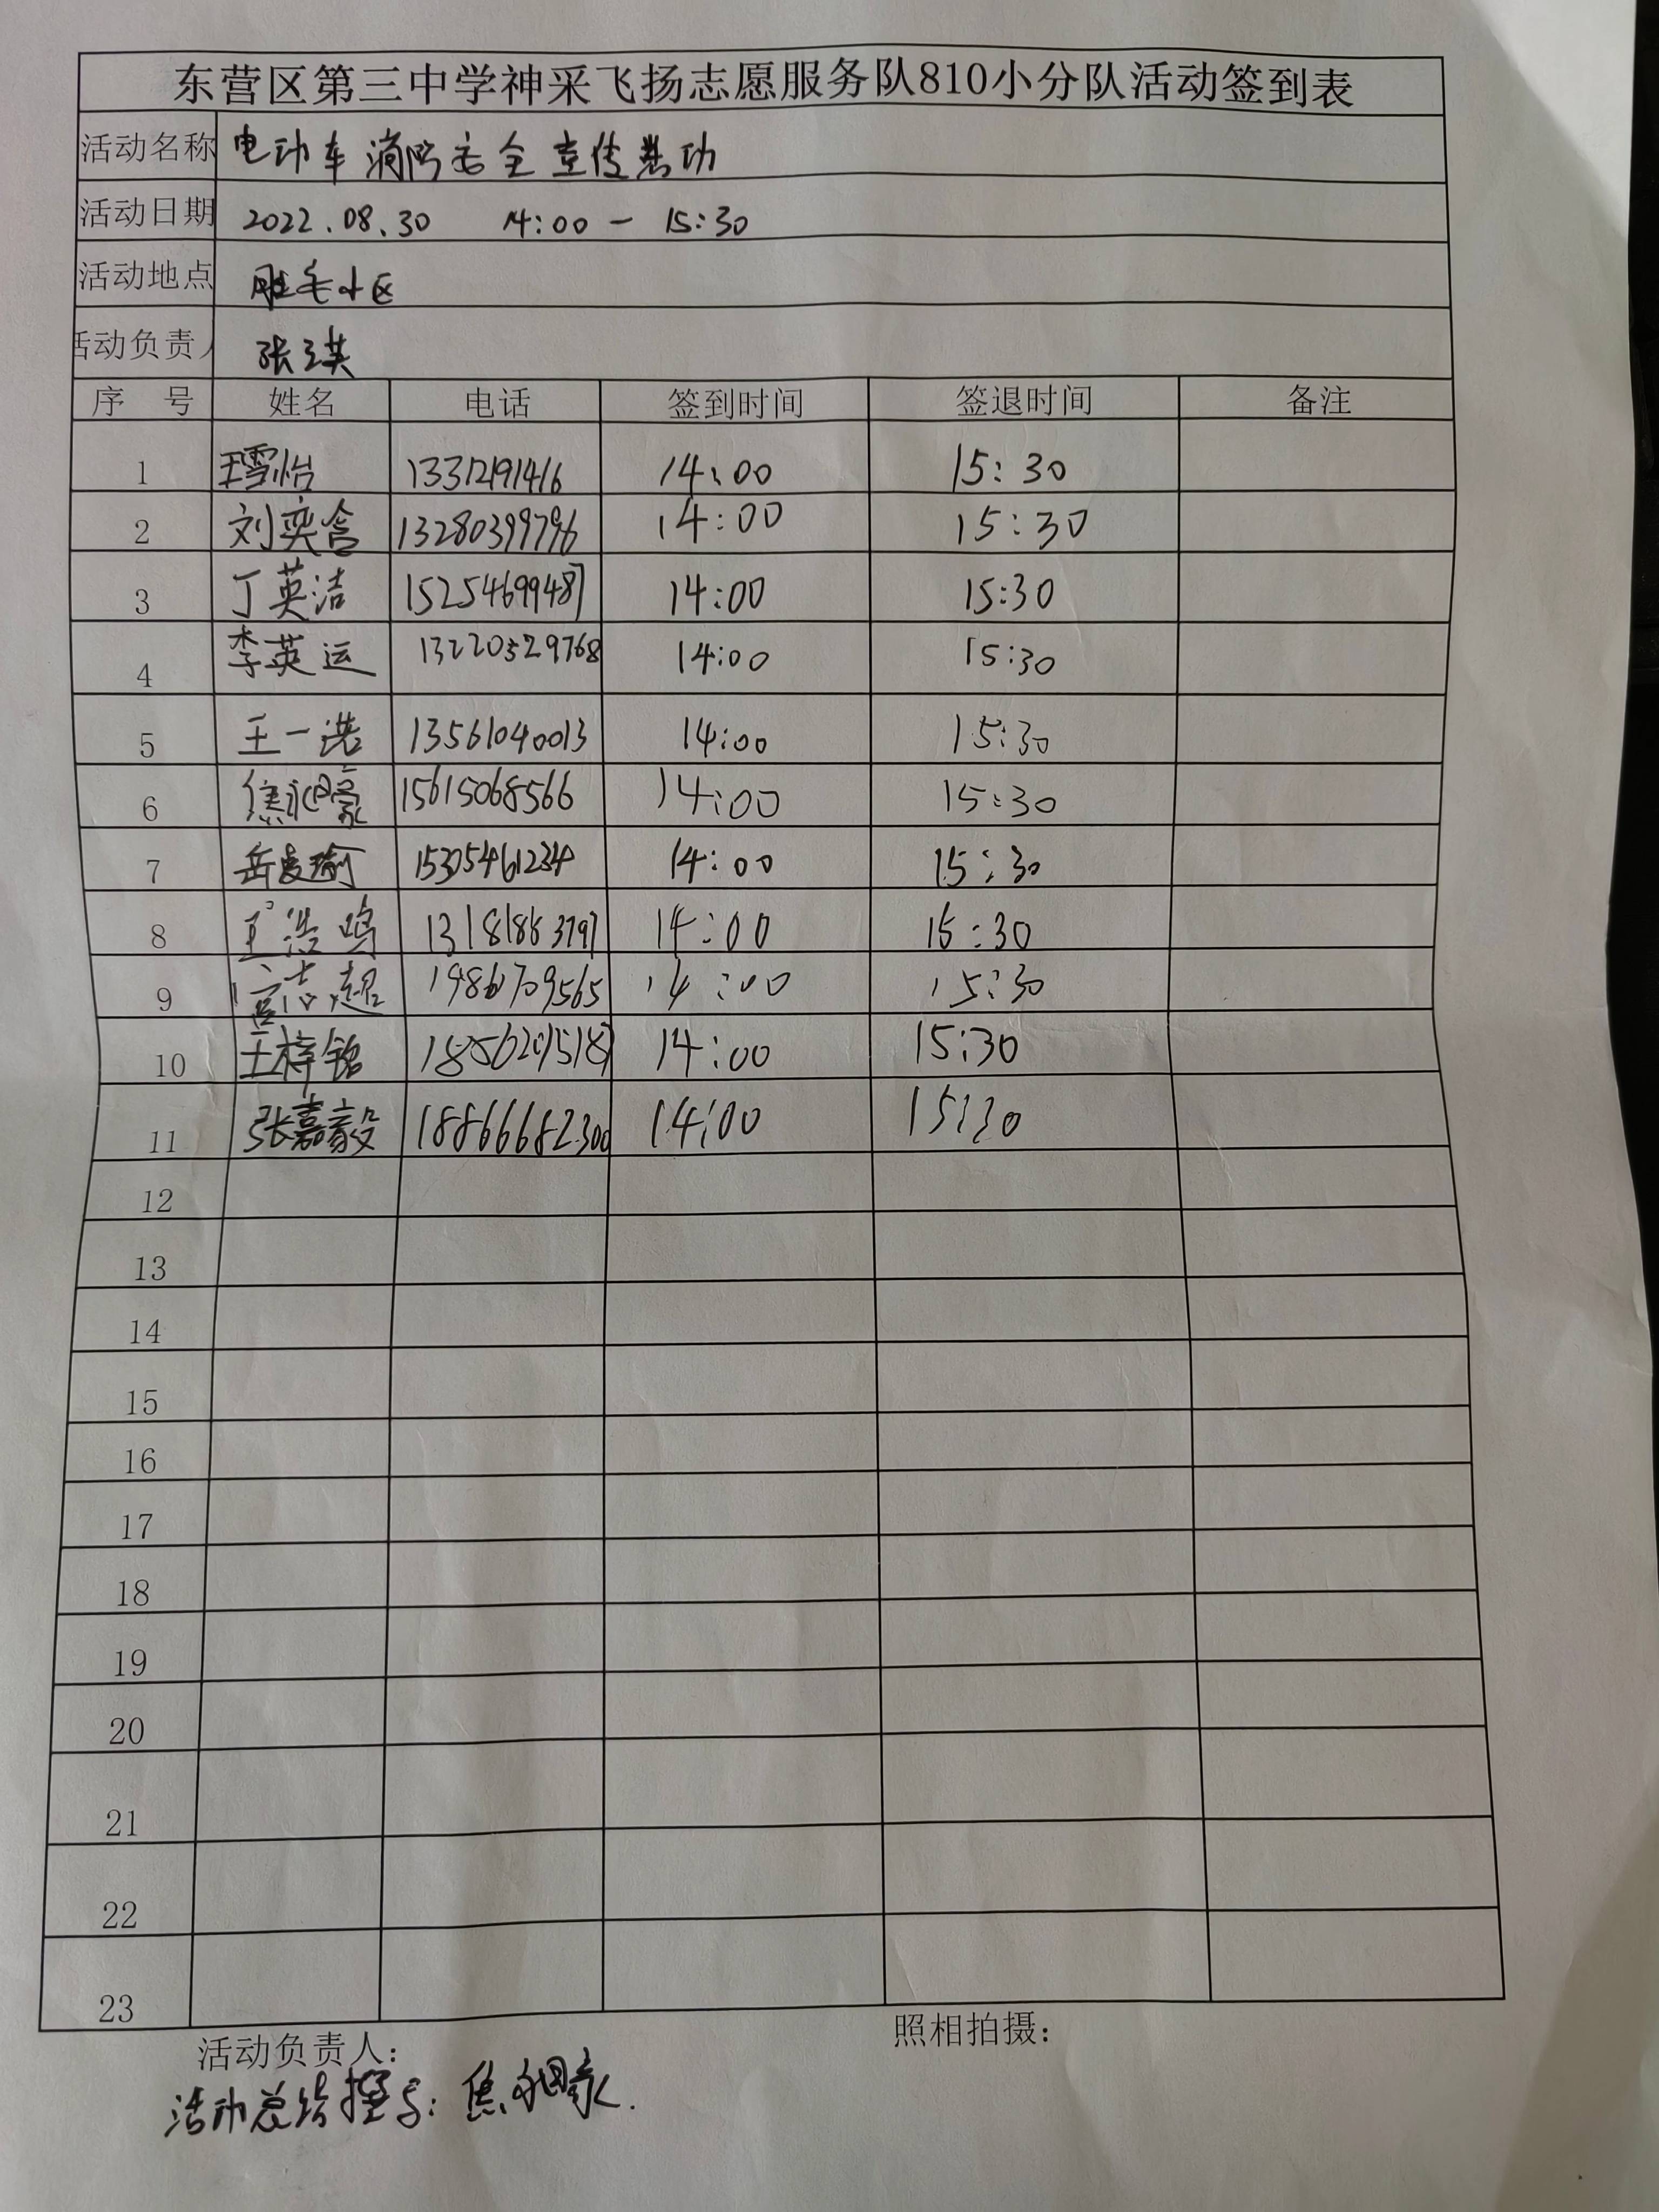 东营区第三中学神采飞扬志愿服务队810小分队活动签到表
活动名称 电动车消防安全宣传
活动日期 2022.08.30 14:00 - 15:30
活动地点 小区
活动负责人 张
序 号 姓名 电话 签到时间 签退时间 备注
1 王雪怡 14:00 15:30
2 刘奕含 13280399796 14:00 15:30
3 丁英洁 15254699487 14:00 15:30
4 李英运 13220529768 14:00 15:30
5 王一 13561040013 14:00 15:30
6 焦 15615068566 14:00 15:30
7 岳 15305461234 14:00 15:30
8 王浩鸣 14:00 15:30
9 志超 19861709565 14:00 15:30
10 王梓铭 14:00 15:30
11 张嘉毅 18866682300 14:00 15:30
12
13
14
15
16
17
18
19
20
21
22
23
活动负责人： 照相拍摄：
活动总结撰写：焦